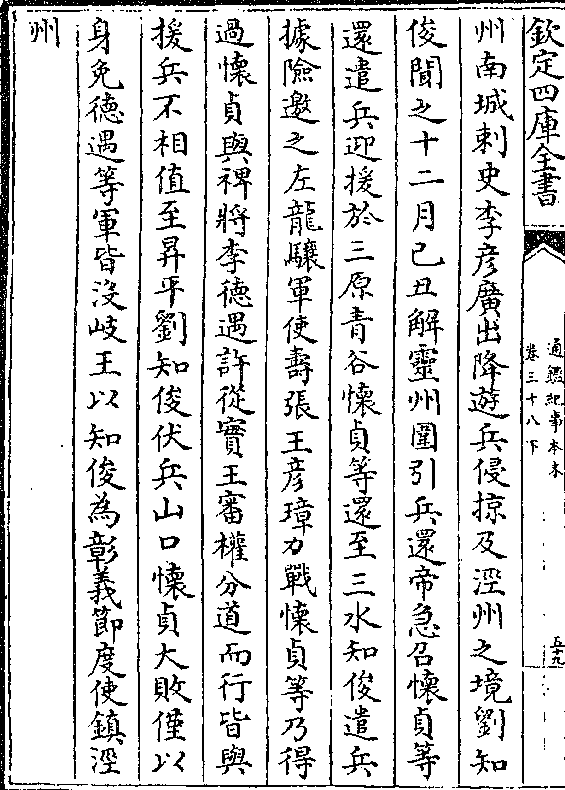 欽定四庫全書
通鑑紀事本末
卷三十八下
五十九
州南城刺史李彦廣出降遊兵侵掠及涇州之境劉知
俊聞之十二月己丑解靈州圍引兵還帝急召懷貞等
還遣兵迎援於三原青谷懷貞等還至三水知俊遣兵
據險邀之左龍驤軍使壽張王彦璋力戰懷貞等乃得
過懷貞與裨將李德遇許從實王審權分道而行皆與
援兵不相值至昇平劉知俊伏兵山口懷貞大敗僅以
身免德遇等軍皆沒岐王以知俊為彰義節度使鎮涇
州